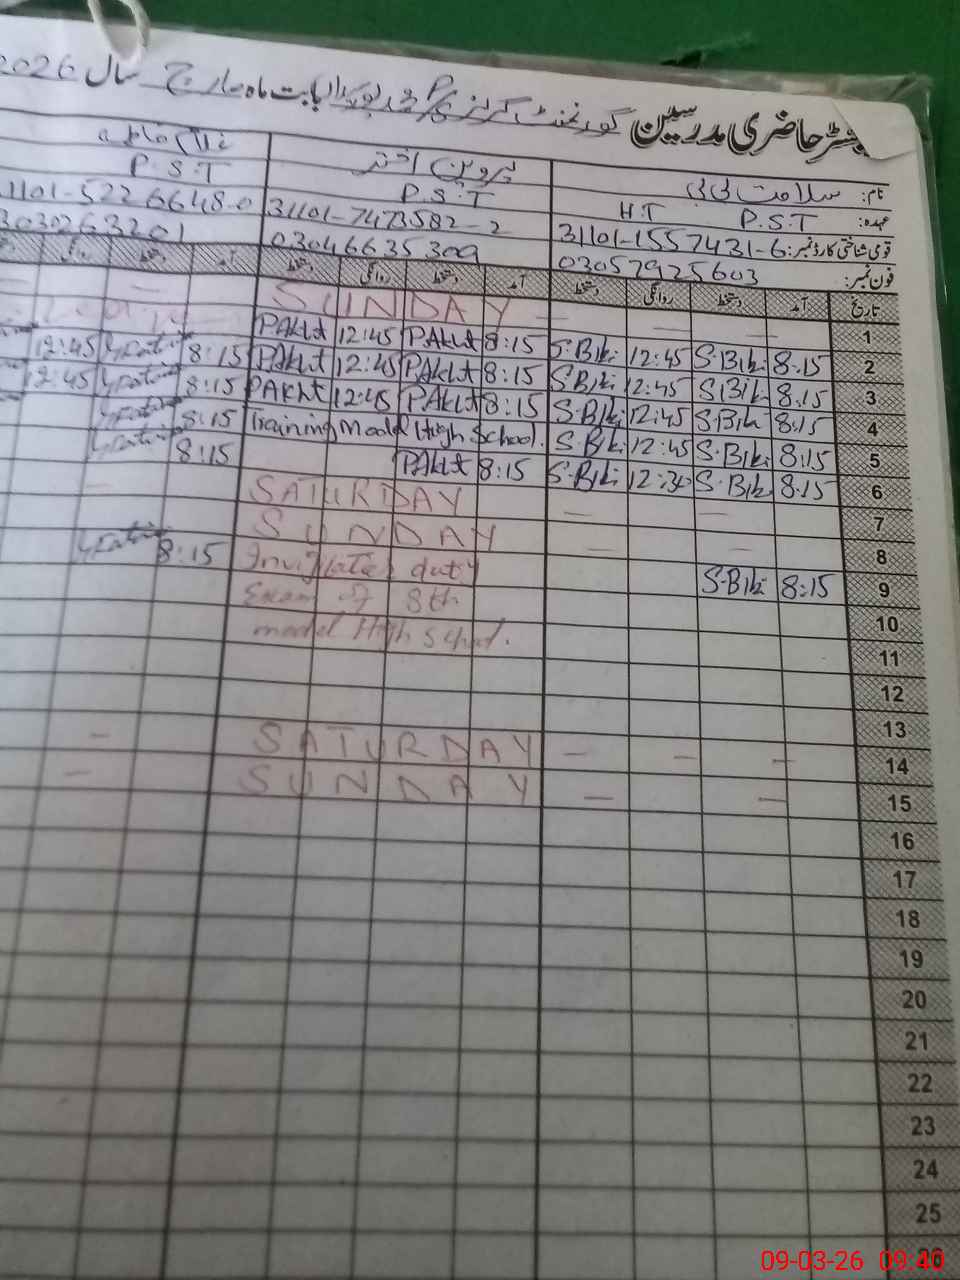 رجسٹر حاضری مدرسین گورنمنٹ گرلز P/S بابت ماہ مارچ سال 2026
نام: سلامت بی بی پروین اختر غلام فاطمہ
عہدہ: P.S.T H.T P.S.T P.S.T
قومی شناختی کارڈ نمبر: 31101-1557431-6 31101-7473582-2 1101-5226648-0
فون نمبر: 03057925603 03046635309 30302663201
تاریخ آمد دستخط روانگی دستخط آمد دستخط روانگی دستخط آمد دستخط روانگی
1 — — SUNDAY —
2 8:15 S.Bibi 12:45 S.Bibi 8:15 PAkht 12:45 PAkht 8:15 12:45
3 8:15 S.Bibi 12:45 S.Bibi 8:15 PAkht 12:45 PAkht 8:15 12:45
4 8:15 S.Bibi 12:45 S.Bibi 8:15 PAkht 12:45 PAkht 8:15
5 8:15 S.Bibi 12:45 S.Bibi Training Model High School. 8:15
6 8:15 S.Bibi 12:30 S.Bibi 8:15 PAkht
7 — — SATURDAY —
8 — — SUNDAY
9 8:15 S.Bibi Invigilation duty 8:15
10 Exam of 8th
11 model High School.
12
13
14 — — — SATURDAY —
15 — — SUNDAY —
16
17
18
19
20
21
22
23
24
25
26
09-03-26 09:40